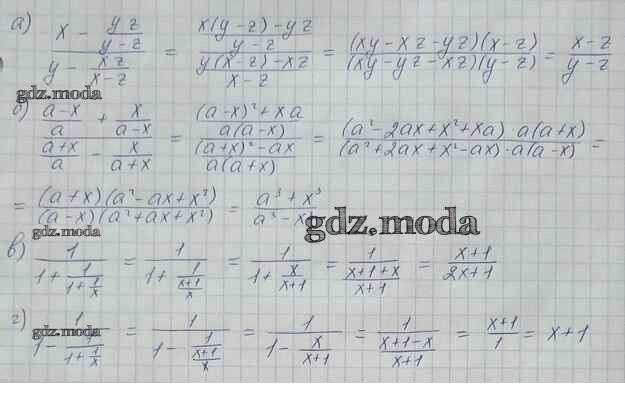 а) (x - yz/(y-z)) / (y - xz/(x-z)) = ((x(y-z)-yz)/(y-z)) / ((y(x-z)-xz)/(x-z)) = (xy-xz-yz)(x-z) / (xy-yz-xz)(y-z) = (x-z)/(y-z)
gdz.moda
б) ((a-x)/a + x/(a-x)) / ((a+x)/a - x/(a+x)) = (((a-x)²+xa)/(a(a-x))) / (((a+x)²-ax)/(a(a+x))) = (a²-2ax+x²+xa)·a(a+x) / (a²+2ax+x²-ax)·a(a-x) =
= (a+x)(a²-ax+x²) / (a-x)(a²+ax+x²) = (a³+x³)/(a³-x³)
gdz.moda
gdz.moda
в) 1/(1+1/(1+1/x)) = 1/(1+1/((x+1)/x)) = 1/(1+x/(x+1)) = 1/((x+1+x)/(x+1)) = (x+1)/(2x+1)
г) 1/(1-1/(1+1/x)) = 1/(1-1/((x+1)/x)) = 1/(1-x/(x+1)) = 1/((x+1-x)/(x+1)) = (x+1)/1 = x+1
gdz.moda
gdz.moda